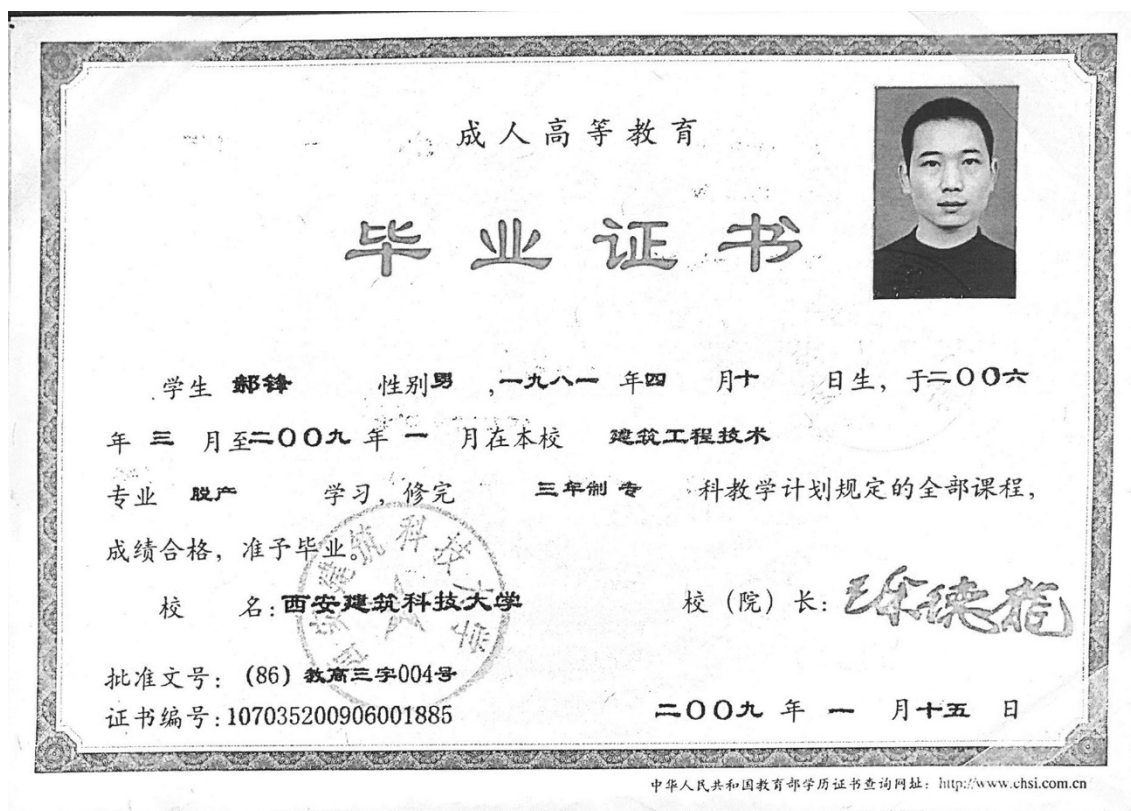 成人高等教育
毕业证书
学生 郝锋 性别男,一九八一 年四 月十 日生,于二〇〇六
年 三 月至二〇〇九 年 一 月在本校 建筑工程技术
专业 脱产 学习,修完 三年制 专 科教学计划规定的全部课程,
成绩合格,准予毕业。
西安建筑科技大学
校 名:西安建筑科技大学 校(院)长:徐德龙
批准文号:(86)教高三字004号
证书编号:107035200906001885 二〇〇九 年 一 月十五 日
中华人民共和国教育部学历证书查询网址:http://www.chsi.com.cn